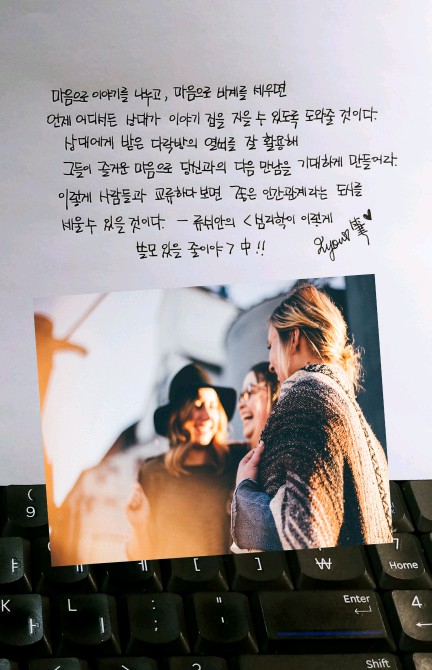 마음으로 이야기를 나누고, 마음으로 뼈계를 세우면
언제 어디서든 상대가 이야기 집을 지을 수 있도록 도와줄 것이다.
상대에게 받은 다락방의 열쇠를 잘 활용해
그들이 즐거운 마음으로 당신과의 다음 만남을 기대하게 만들어라.
이렇게 사람들과 교류하다 보면 '좋은 인간관계'라는 도서를
세울 수 있을 것이다. - 류쉬안의 <심리학이 이렇게
쓸모 있을 줄이야> 中!!
( 9
ㅑ ㅐ ㅔ [ ] ₩ 7 Home
K ㅏ L ㅣ : ; " ' Enter 4
? Shift